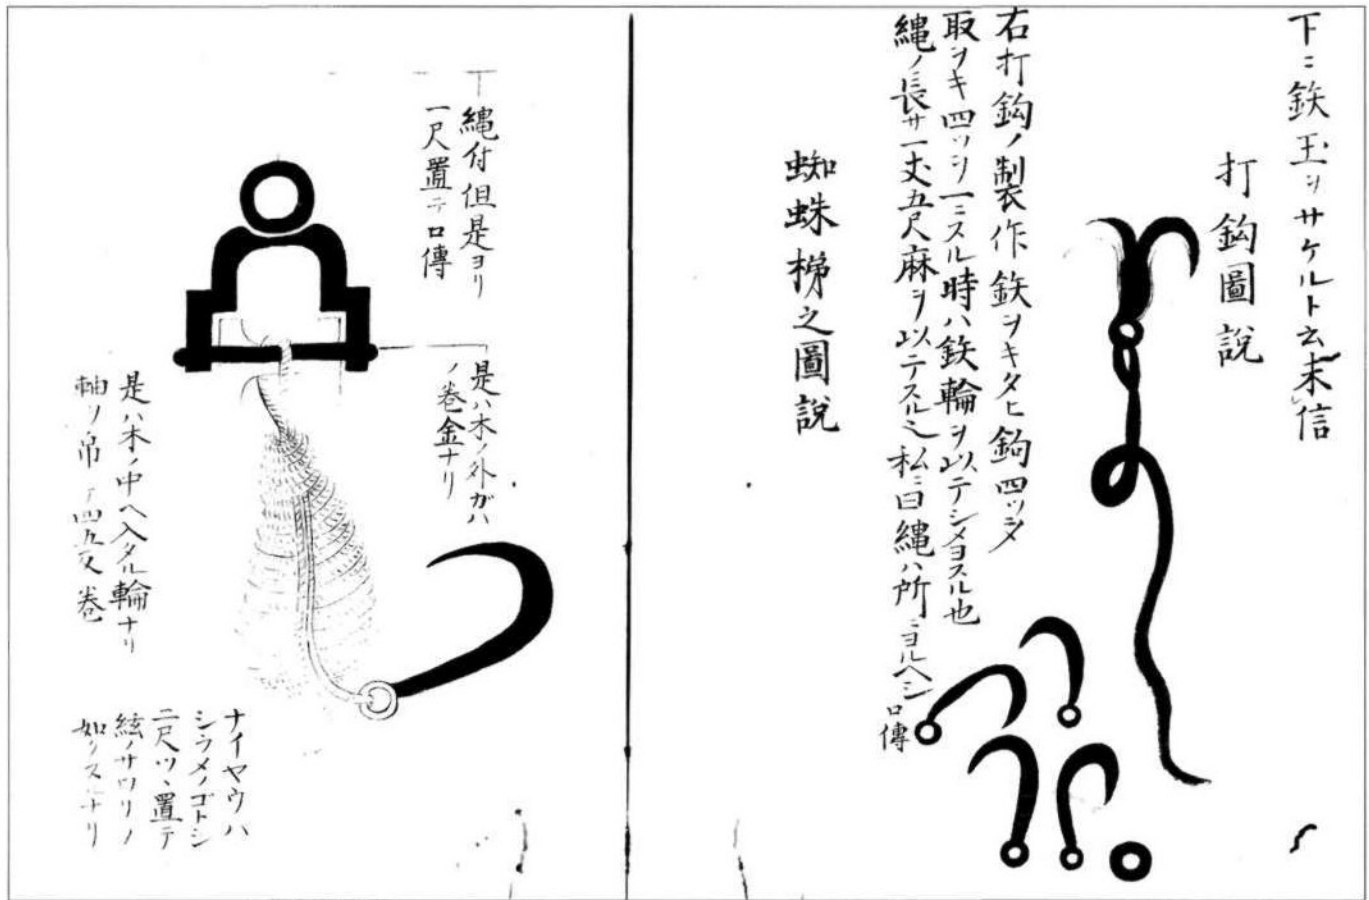 下ニ鉄玉ヲサケルト云未信
打鈎圖説
右打鈎ノ製作鉄ヲキタヒ鈎四ッヲ
取ヲキ四ッヲ一ニスル時ハ鉄輪ヲ以テシメヨスル也
縄ノ長サ一丈五尺麻ヲ以テスル之私ニ曰縄ハ所ニヨルヘシ
口傳
蜘蛛梯之圖説
縄付但是ヨリ
一尺置テ口傳
是ハ木ノ外ガハ
ノ巻金ナリ
是ハ木ノ中ヘ入タル輪ナリ
軸ノ
四五 巻
ナイヤウハ
シラメノゴトシ
二尺ツヽ置テ
絃ノサワリノ
如クスルナリ